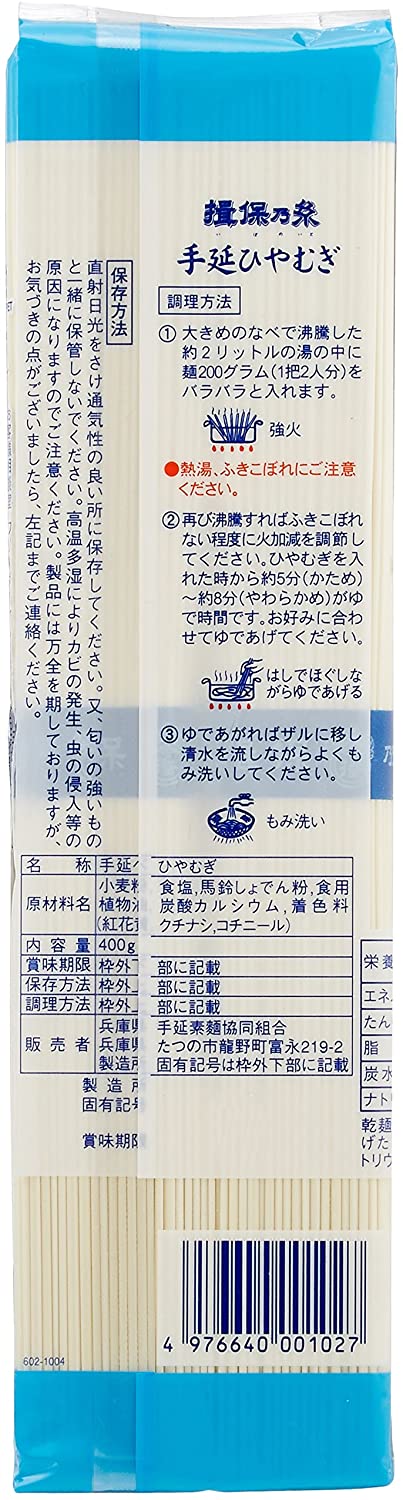 揖保乃糸
いぼのいと
手延ひやむぎ
調理方法
① 大きめのなべで沸騰した
約2リットルの湯の中に
麺200グラム(1把2人分)を
バラバラと入れます。
強火
●熱湯、ふきこぼれにご注意
ください。
② 再び沸騰すればふきこぼれ
ない程度に火加減を調節し
てください。ひやむぎを入
れた時から約5分(かため)
〜約8分(やわらかめ)がゆ
で時間です。お好みに合わ
せてゆであげてください。
はしでほぐしな
がらゆであげる
③ ゆであがればザルに移し
清水を流しながらよくも
み洗いしてください。
もみ洗い
保存方法
直射日光をさけ通気性の良い所に保存してください。又、匂いの強いもの
と一緒に保管しないでください。高温多湿によりカビの発生、虫の侵入等の
原因になりますのでご注意ください。製品には万全を期しておりますが、
お気づきの点がございましたら、左記までご連絡ください。
名称 手延べ ひやむぎ
原材料名 小麦粉 食塩,馬鈴しょでん粉,食用
植物油 炭酸カルシウム,着色料
(紅花黄 クチナシ,コチニール)
内容量 400g
賞味期限 枠外 部に記載
保存方法 枠外上 部に記載
調理方法 枠外上 部に記載
販売者 兵庫県 手延素麺協同組合
兵庫県 たつの市龍野町富永219-2
製造所 固有記号は枠外下部に記載
製造所
固有記号
賞味期限
栄養
エネル
たん
脂
炭水
ナトリ
乾麺
げた
トリウ
4 976640 001027
602-1004